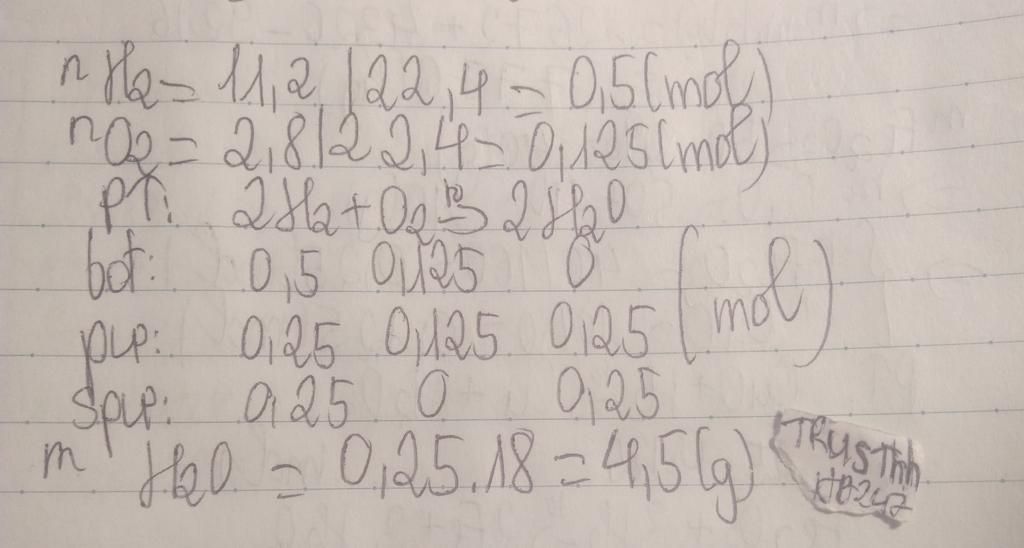 nH2 = 11,2 / 22,4 = 0,5 (mol)
nO2 = 2,8 / 22,4 = 0,125 (mol)
PT: 2H2 + O2 → 2H2O
bđ: 0,5 0,125 0
pư: 0,25 0,125 0,25 (mol)
Spư: 0,25 0 0,25
mH2O = 0,25.18 = 4,5 (g)
TRUSThh